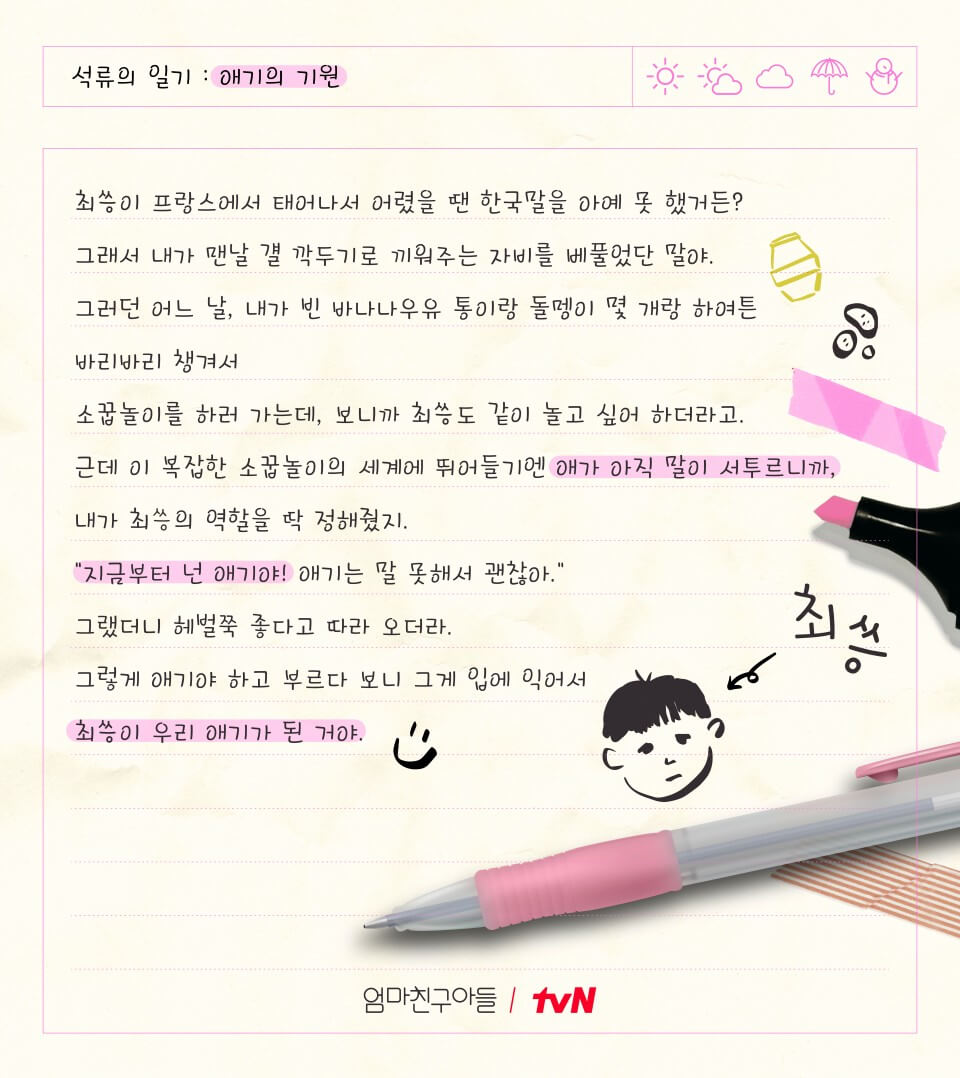 석류의 일기 : 애기의 기원
최씅이 프랑스에서 태어나서 어렸을 땐 한국말을 아예 못 했거든?
그래서 내가 맨날 걜 깍두기로 끼워주는 자비를 베풀었단 말야.
그러던 어느 날, 내가 빈 바나나우유 통이랑 돌멩이 몇 개랑 하여튼
바리바리 챙겨서
소꿉놀이를 하러 가는데, 보니까 최씅도 같이 놀고 싶어 하더라고.
근데 이 복잡한 소꿉놀이의 세계에 뛰어들기엔 얘가 아직 말이 서투르니까,
내가 최씅의 역할을 딱 정해줬지.
"지금부터 넌 애기야! 애기는 말 못해서 괜찮아."
그랬더니 헤벌쭉 좋다고 따라 오더라.
최씅
그렇게 애기야 하고 부르다 보니 그게 입에 익어서
최씅이 우리 애기가 된 거야.
엄마친구아들 / tvN